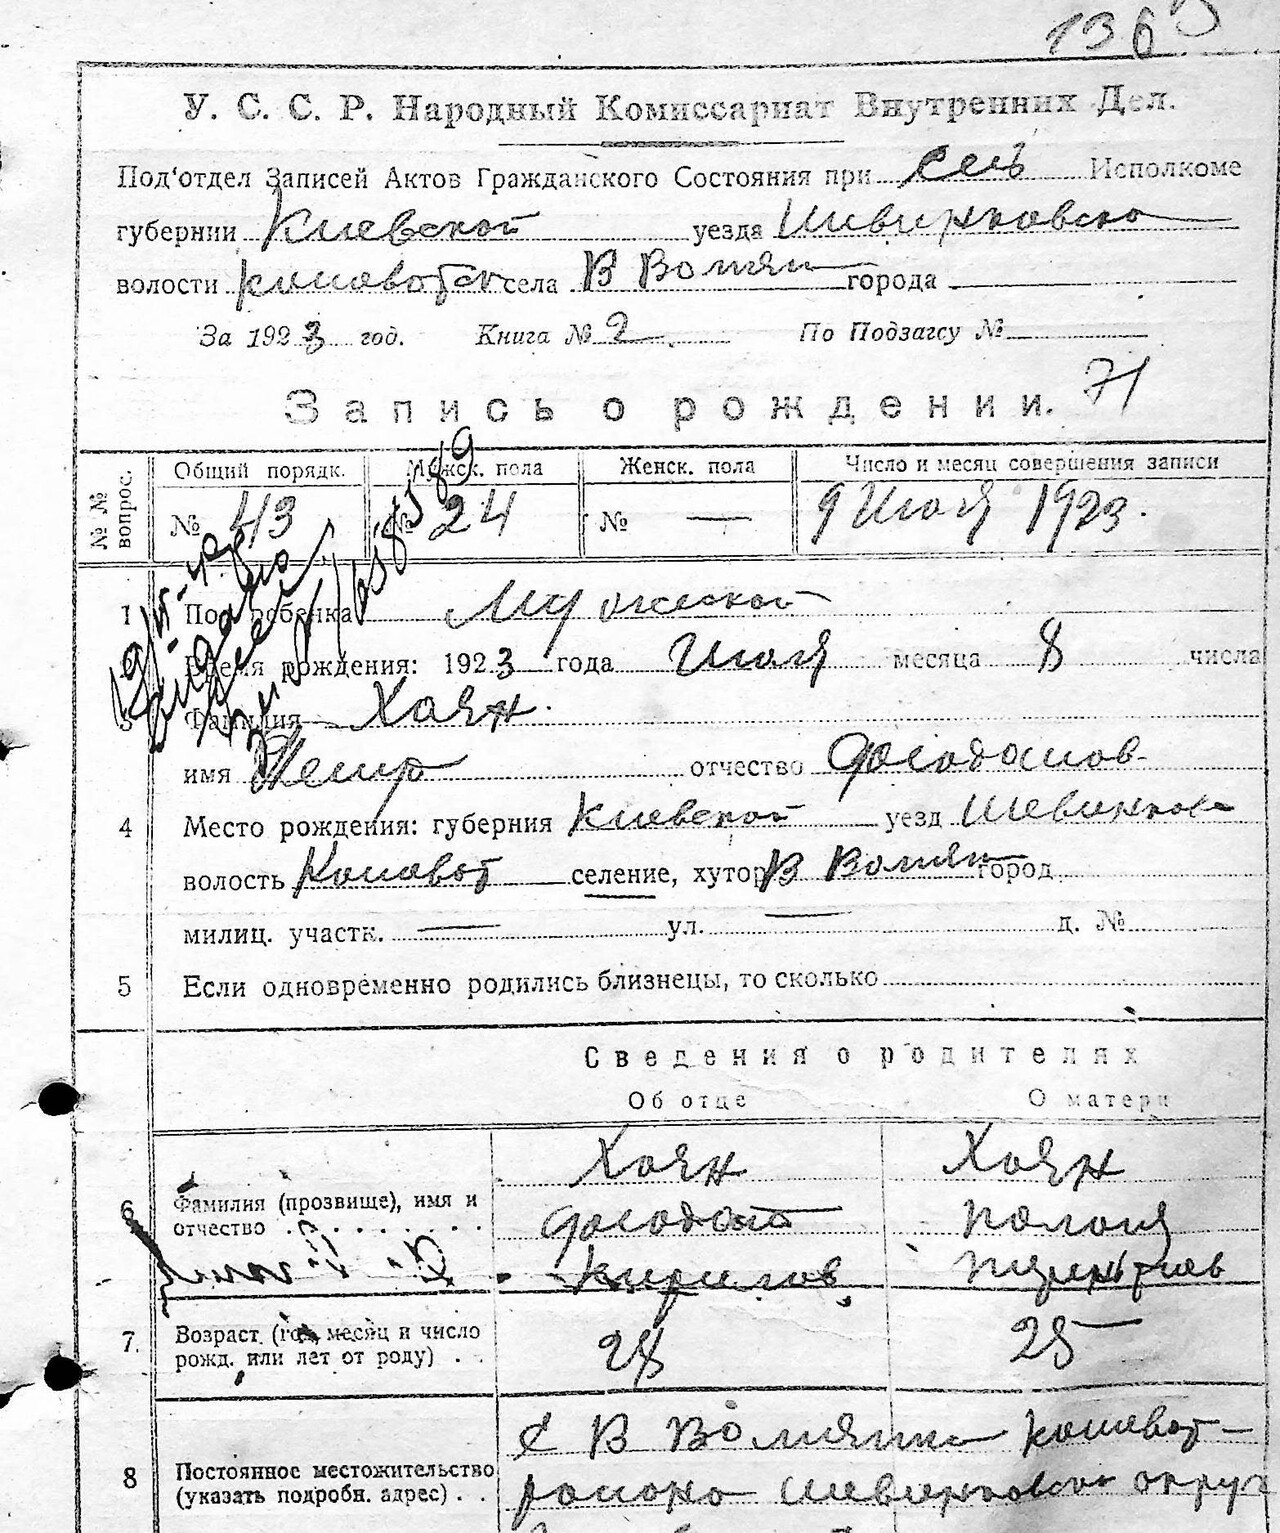 136
У. С. С. Р. Народный Комиссариат Внутренних Дел.
Под'отдел Записей Актов Гражданского Состояния при сель Исполкоме
губернии Киевской уезда Шевченковско
волости села В Вовнян города
За 1923 год. Книга № 2 По Подзагсу №
Запись о рождении. 71
№ № вопрос.
Общий порядк. Мужск. пола Женск. пола Число и месяц совершения записи
№ 43 № 24 № — 9 Июля 1923.
1 Пол ребенка Мужеской
2 Время рождения: 1923 года Июля месяца 8 числа
3 Фамилия Хоян.
имя Петр отчество Феодосиов
4 Место рождения: губерния Киевской уезд Шевченков
волость селение, хутор В Вовнян город
милиц. участк. — ул. — д. №
5 Если одновременно родились близнецы, то сколько
Сведения о родителях
Об отце О матери
6 Фамилия (прозвище), имя и отчество
Хоян Хоян
Кирилов
7. Возраст (год, месяц и число рожд. или лет от роду) . . 28 25
8 Постоянное местожительство (указать подробн. адрес) . .
с В
района Шевченковского округ